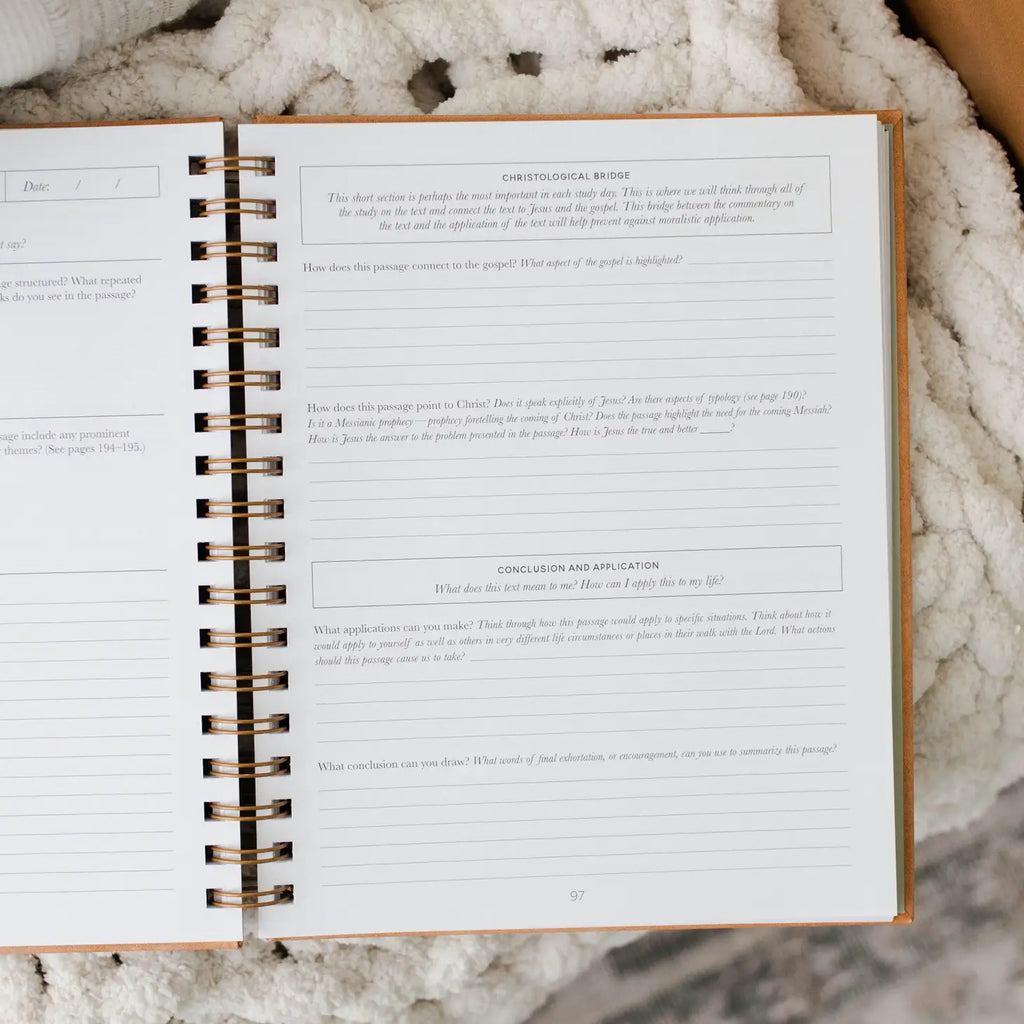 Date: / /
t say?
ge structured? What repeated
ks do you see in the passage?
sage include any prominent
themes? (See pages 194–195.)
CHRISTOLOGICAL BRIDGE
This short section is perhaps the most important in each study day. This is where we will think through all of
the study on the text and connect the text to Jesus and the gospel. This bridge between the commentary on
the text and the application of the text will help prevent against moralistic application.
How does this passage connect to the gospel? What aspect of the gospel is highlighted?
How does this passage point to Christ? Does it speak explicitly of Jesus? Are there aspects of typology (see page 190)?
Is it a Messianic prophecy—prophecy foretelling the coming of Christ? Does the passage highlight the need for the coming Messiah?
How is Jesus the answer to the problem presented in the passage? How is Jesus the true and better ______?
CONCLUSION AND APPLICATION
What does this text mean to me? How can I apply this to my life?
What applications can you make? Think through how this passage would apply to specific situations. Think about how it
would apply to yourself as well as others in very different life circumstances or places in their walk with the Lord. What actions
should this passage cause us to take?
What conclusion can you draw? What words of final exhortation, or encouragement, can you use to summarize this passage?
97